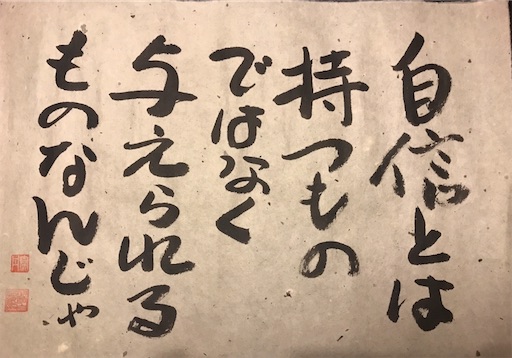 自信とは
持つもの
ではなく
与えられる
ものなんじゃ